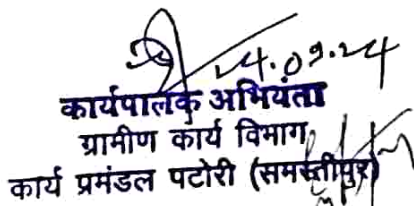 24.09.24
कार्यपालक अभियंता
ग्रामीण कार्य विभाग
कार्य प्रमंडल पटोरी (समस्तीपुर)